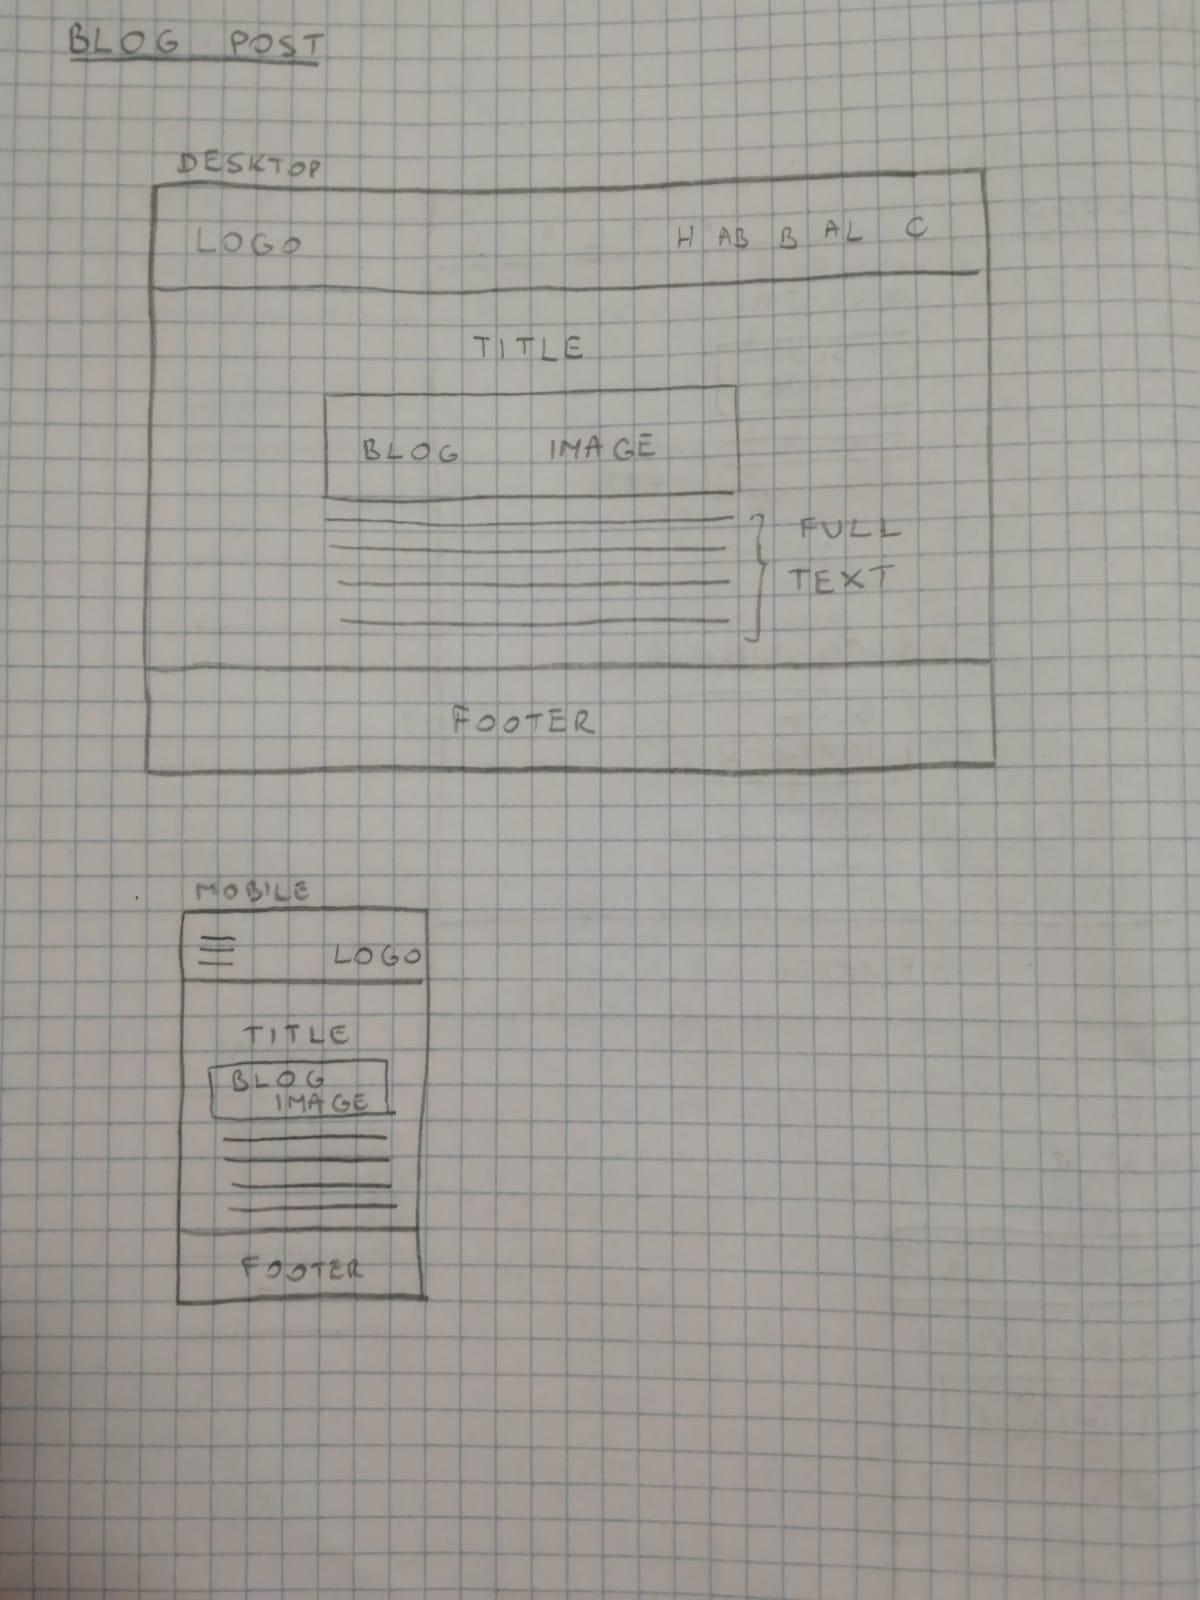 BLOG POST
DESKTOP
LOGO H AB B AL C
TITLE
BLOG IMAGE
FULL
TEXT
FOOTER
MOBILE
LOGO
TITLE
BLOG
IMAGE
FOOTER